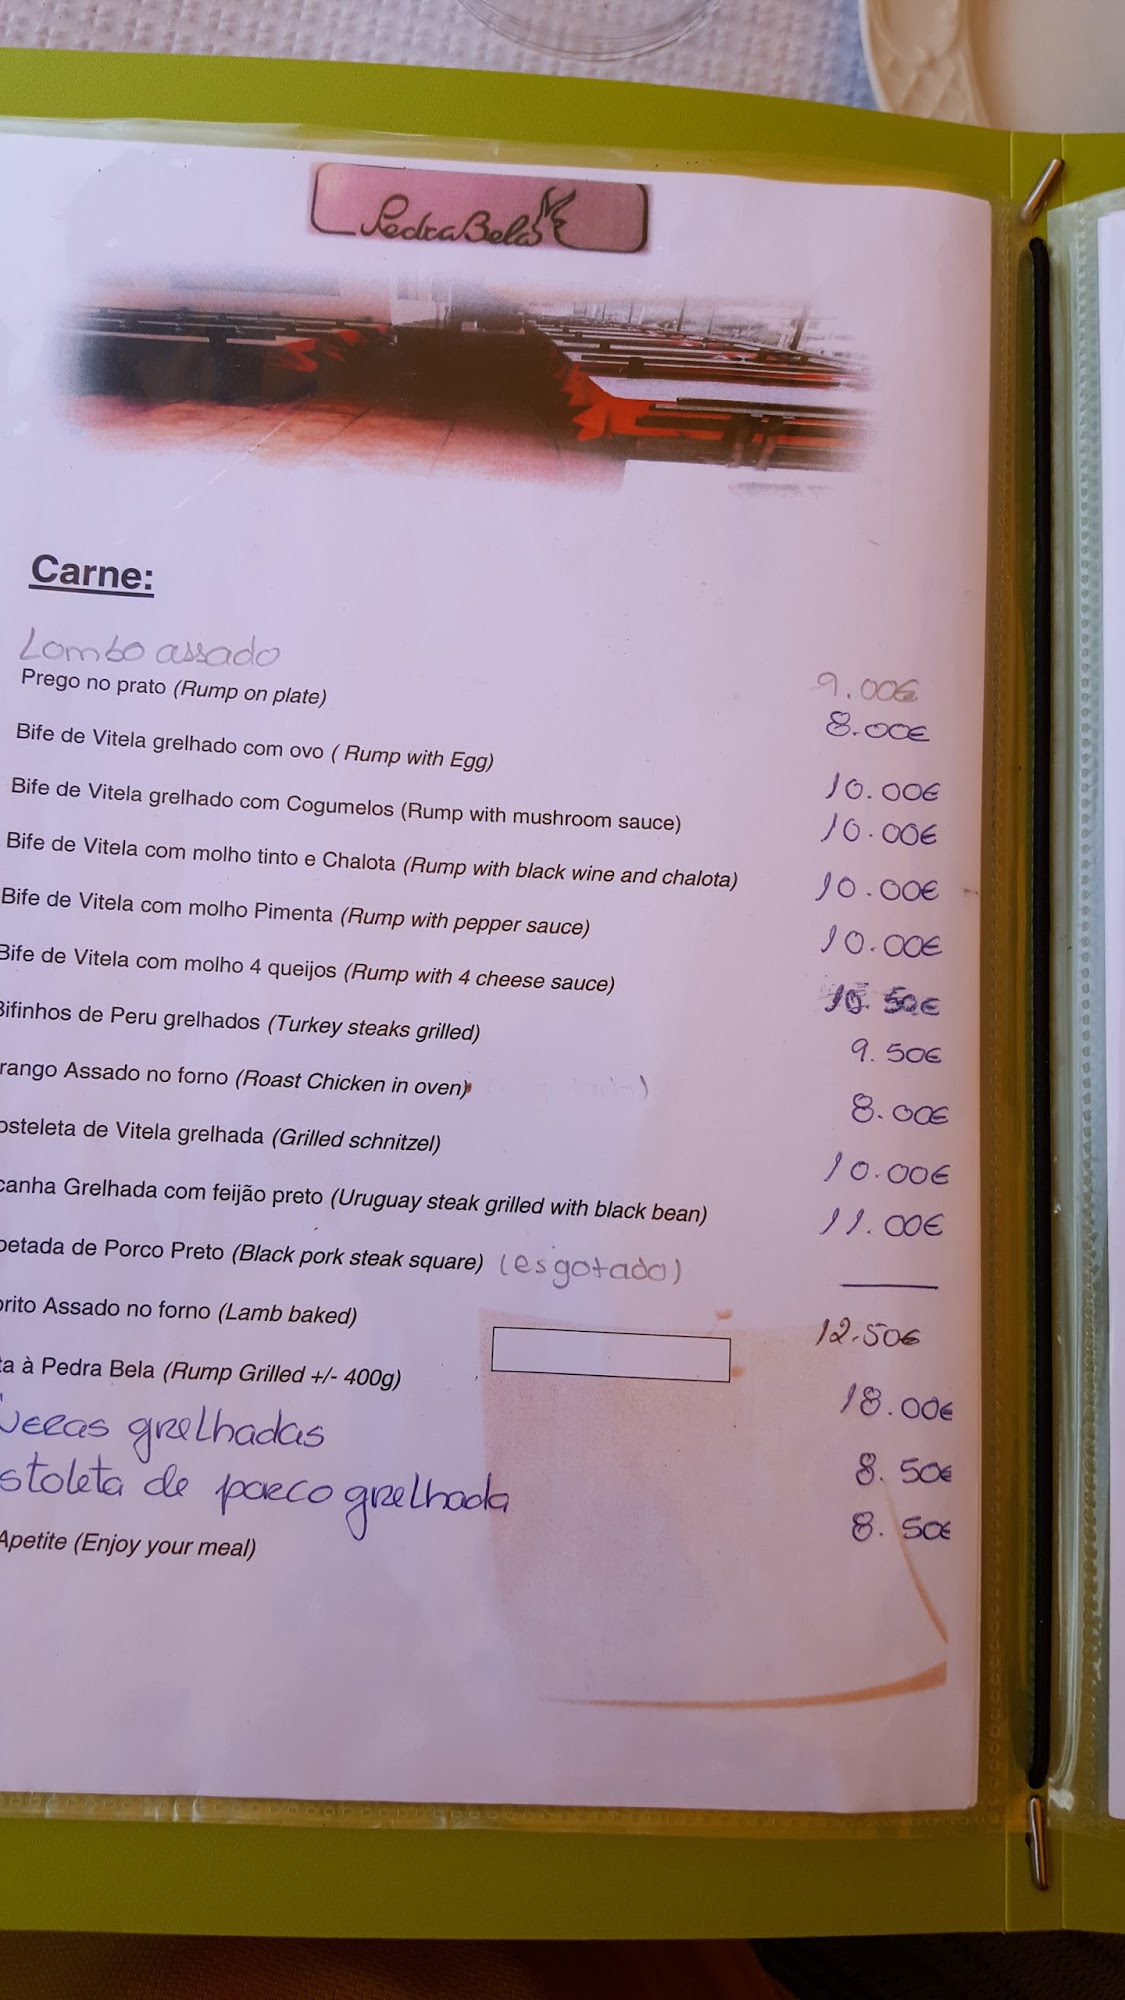 PedraBela
Carne:
Lombo assado 9.00€
Prego no prato (Rump on plate) 8.00€
Bife de Vitela grelhado com ovo ( Rump with Egg) 10.00€
Bife de Vitela grelhado com Cogumelos (Rump with mushroom sauce) 10.00€
Bife de Vitela com molho tinto e Chalota (Rump with black wine and chalota) 10.00€
Bife de Vitela com molho Pimenta (Rump with pepper sauce) 10.00€
Bife de Vitela com molho 4 queijos (Rump with 4 cheese sauce) 10.50€
Bifinhos de Peru grelhados (Turkey steaks grilled) 9.50€
rango Assado no forno (Roast Chicken in oven) 8.00€
osteleta de Vitela grelhada (Grilled schnitzel) 10.00€
canha Grelhada com feijão preto (Uruguay steak grilled with black bean) 11.00€
petada de Porco Preto (Black pork steak square) (esgotado)
orito Assado no forno (Lamb baked) 12.50€
ta à Pedra Bela (Rump Grilled +/- 400g) 18.00€
grelhadas 8.50€
stoleta de porco grelhada 8.50€
Apetite (Enjoy your meal)